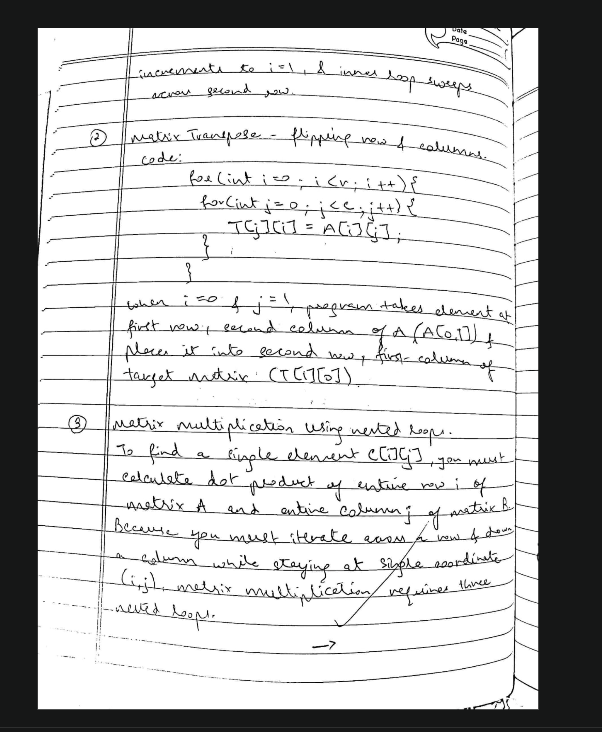 Date
Page
increments to i=1, & inner loop sweeps
across second row.
② Matrix Transpose - flipping row & columns.
code:
for(int i=0; i<r; i++){
for(int j=0; j<c; j++){
T[j][i] = A[i][j];
}
}
when i=0 & j=1, program takes element at
first row, second column of A (A[0,1]) &
places it into second row, first-column of
target matrix (T[1][0])
③ Matrix multiplication using nested loops.
To find a single element C[i][j], you must
calculate dot product of entire row i of
matrix A and entire column j of matrix B.
Because you must iterate across a row & down
a column while staying at single coordinate
(i,j), matrix multiplication requires three
nested loops.
→